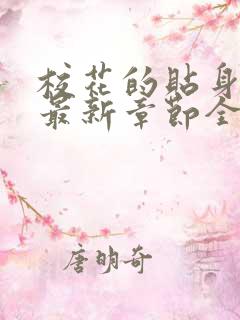 校花的貼身
最新章節全
唐明奇